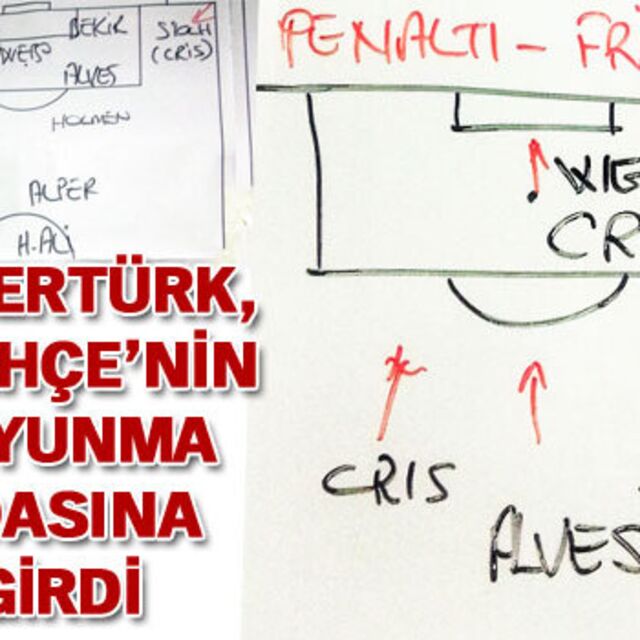 BEKİR
STOCH
(CRIS)
ALVES
HOLMEN
ALPER
H.ALİ
ERTÜRK,
HÇE'NİN
YUNMA
DASINA
GİRDİ
PENALTI - FR
CR
CRIS
ALVES